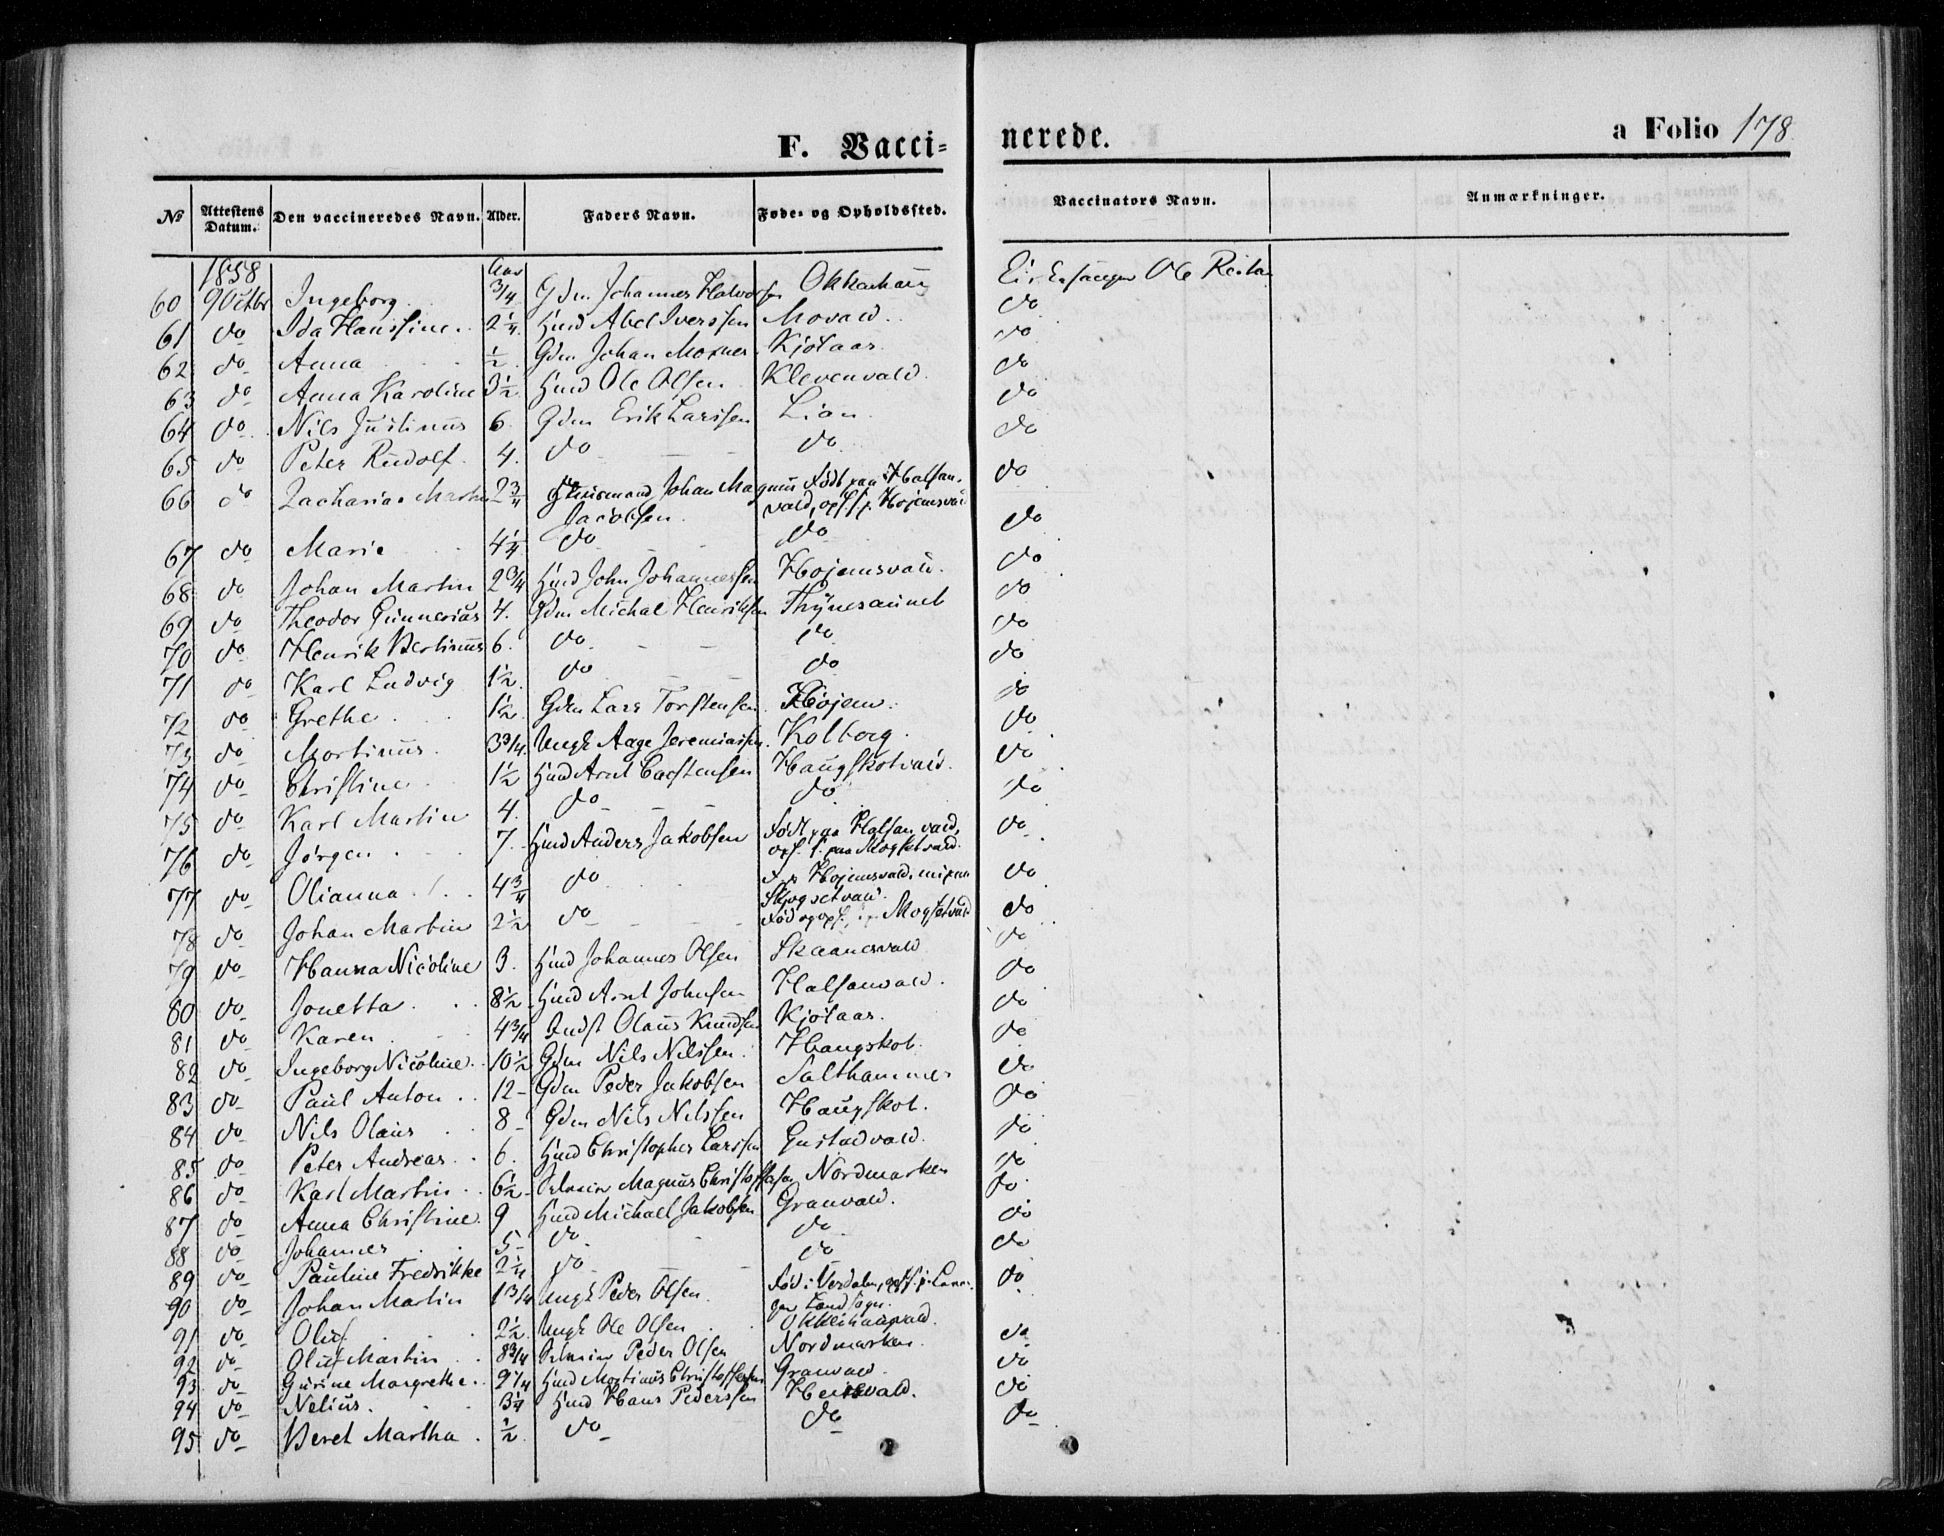 F. Vacci=
nerede.
a Folio 178.
No Attestens Datum. Den vaccineredes Navn. Alder. Faders Navn. Føde- og Opholdssted. Vaccinators Navn. Anmærkninger.
1858 Aar
60 9 Octbr Ingeborg 3/4 Gdm Johannes Halvorsen Okkenhaug Ole Reitan
61 do Ida Hansine 2 1/4 Husmd Abel Iverssen Movald do
62 do Anna 1/2 Gdm Johan Moxnes Kjølaas do
63 do Anna Karoline 3 1/2 Husmd Ole Olsen Klevenvald do
64 do Nils Justinus 6 Gdm Erik Larssen Lian do
65 do Peter Rudolf 4 do do do
66 do Zacharias Martin 2 3/4 Huusmand Johan Magnus Jacobsen Født paa Halsanvald, opf. p. Højemsvald do
67 do Marie 4 1/4 do do do
68 do Johan Martin 2 3/4 Husmd John Johannessen Højemsvald do
69 do Theodor Gunnerius 4 Gdm Michal Henriksen Thynesaunet do
70 do Henrik Bertinus 6 do do do
71 do Karl Ludvig 1 1/2 do do do
72 do Grethe 1 1/2 Gdm Lars Torstensen Højem do
73 do Mortinus 3 3/4 Ungk Aage Jeremiassen Kolberg do
74 do Christine 1 1/2 Husmd Arnt Carstensen Haugskotvald do
75 do Karl Martin 4 do do do
76 do Jørgen 7 Husmd Anders Jakobsen Født paa Halsanvald, opf. paa Mogsetvald do
77 do Olianna 4 3/4 do F. p. Højemsvald do
78 do Johan Martin 2 1/2 do Fød og opf. Mogsetvald do
79 do Hanna Nicoline 3 Husmd Johannes Olsen Skaanesvald do
80 do Jonetta 8 1/2 Husmd Arnt Johnsen Halsanvald do
81 do Karen 4 3/4 Indst Olaus Knudsen Kjølaas do
82 do Ingeborg Nicoline 10 1/2 Gdm Nils Nilssen Haugskot do
83 do Paul Anton 12 Gdm Peder Jakobsen Salthammer do
84 do Nils Olaus 8 Gdm Nils Nilssen Haugskot do
85 do Peter Andreas 6 Husmd Christopher Larssen Gustadvald do
86 do Karl Martin 6 1/2 Selveier Magnus Christoffersen Nordmarken do
87 do Anna Christine 9 Husmd Michael Jakobsen Granvald do
88 do Johannes 5 do do do
89 do Pauline Fredrikke 2 1/4 do do do
90 do Johan Martin 1 3/4 Ungk Peder Olsen Fød i Verdalen, Landsogn do
91 do Oluf 2 1/2 Ungk Ole Olsen Okkenhaugvald do
92 do Oluf Martin 8 3/4 Selveier Peder Olsen Nordmarken do
93 do Gurine Margrethe 2 1/4 Husmd Mortinus Christoffersen Granvald do
94 do Nelius 3 1/4 Husmd Hans Pederssen do
95 do Beret Martha 1/2 do do do